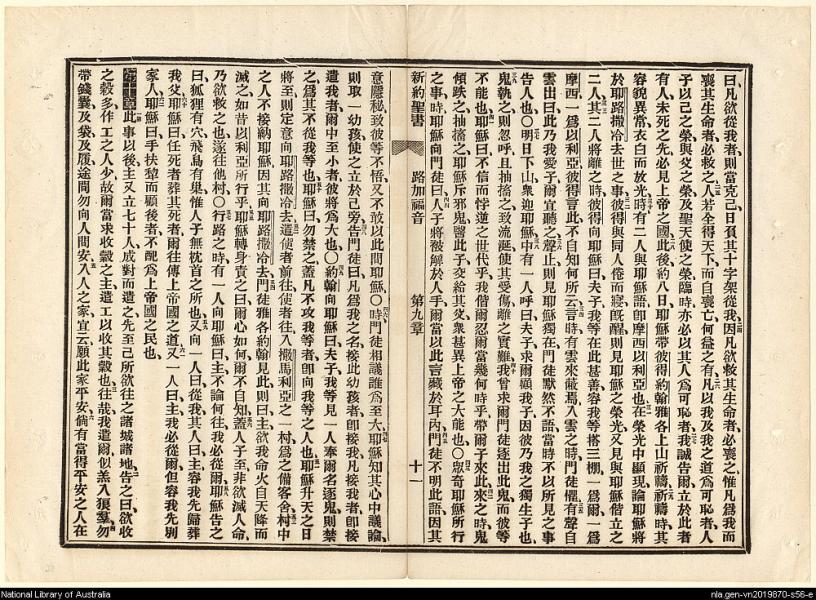 曰凡欲從我者則當克己日負其十字架從我因凡欲救其生命者必喪之惟凡爲我而
喪其生命者必救之人若全得天下而自喪亡何益之有凡以我及我之道爲可恥者人
子以己之榮與父之榮及聖天使之榮臨時亦必以其人爲可恥者我誠告爾立於此者
有人未死之先必見上帝之國此後約八日耶穌帶彼得約翰雅各上山祈禱祈禱時其
容貌異常衣白而放光時有二人與耶穌語卽摩西以利亞也在榮光中顯現論耶穌將
於耶路撒冷去世之事彼得與同人倦而寢旣醒則見耶穌之榮光又見與耶穌偕立之
二人其二人將離之時彼得向耶穌曰夫子我等在此甚善容我等搭三棚一爲爾一爲
摩西一爲以利亞彼得言此不自知何所云言時有雲來蔽焉入雲之時門徒懼有聲自
雲出曰此乃我愛子爾宜聽之聲止則見耶穌獨在門徒默然不語當時不以所見之事
告人也〇明日下山衆迎耶穌中有一人呼曰夫子求爾顧我子因彼乃我之獨生子也
鬼執之則忽呼且抽搐之致流涎使其受傷離之實難我曾求爾門徒逐出此鬼而彼等
不能也耶穌曰不信而悖逆之世代乎我偕爾忍爾當幾何時乎帶爾子來此來之時鬼
傾跌之抽搐之耶穌斥邪鬼醫此子交給其父衆甚異上帝之大能也〇衆奇耶穌所行
之事時耶穌向門徒曰人子將被解於人手爾當以此言藏於耳內門徒不明此語因其
新約聖書 路加福音 第九章 十一
意隱秘致彼等不悟又不敢以此問耶穌〇時門徒相議誰爲至大耶穌知其心中議論
則取一幼孩使之立於己旁告門徒曰凡爲我之名接此幼孩者卽接我凡接我者卽接
遣我者爾中至小者彼將爲大也〇約翰向耶穌曰夫子我等見一人奉爾名逐鬼則禁
之爲其不從我等也耶穌曰勿禁之蓋凡不攻我等者卽向我等之人也耶穌升天之日
將至則定意向耶路撒冷去遣使者前往使者往入撒馬利亞之一村爲之備客舍村中
之人不接納耶穌因其向耶路撒冷去門徒雅各約翰見此則曰主欲我命火自天降而
滅之如昔以利亞所行乎耶穌轉身責之曰爾心如何爾不自知蓋人子至非欲滅人命
乃欲救之也遂往他村〇行路之時有一人向耶穌曰主不論何往我必從爾耶穌告之
曰狐狸有穴飛鳥有巢惟人子無枕首之所也又向一人曰從我其人曰主容我先歸葬
我父耶穌曰任死者葬其死者爾往傳上帝國之道又一人曰主我必從爾但容我先別
家人耶穌曰手扶犂而顧後者不配爲上帝國之民也
第十章此事以後主又立七十人成對而遣之先至己所欲往之諸城諸地告之曰欲收
之穀多作工之人少故爾當求收穀之主遣工以收其穀也往哉我遣爾似羔入狼羣勿
帶錢囊及袋及履途間勿向人問安入人之家宜云願此家平安倘有當得平安之人在
National Library of Australia
nla.gen-vn2019870-s56-e